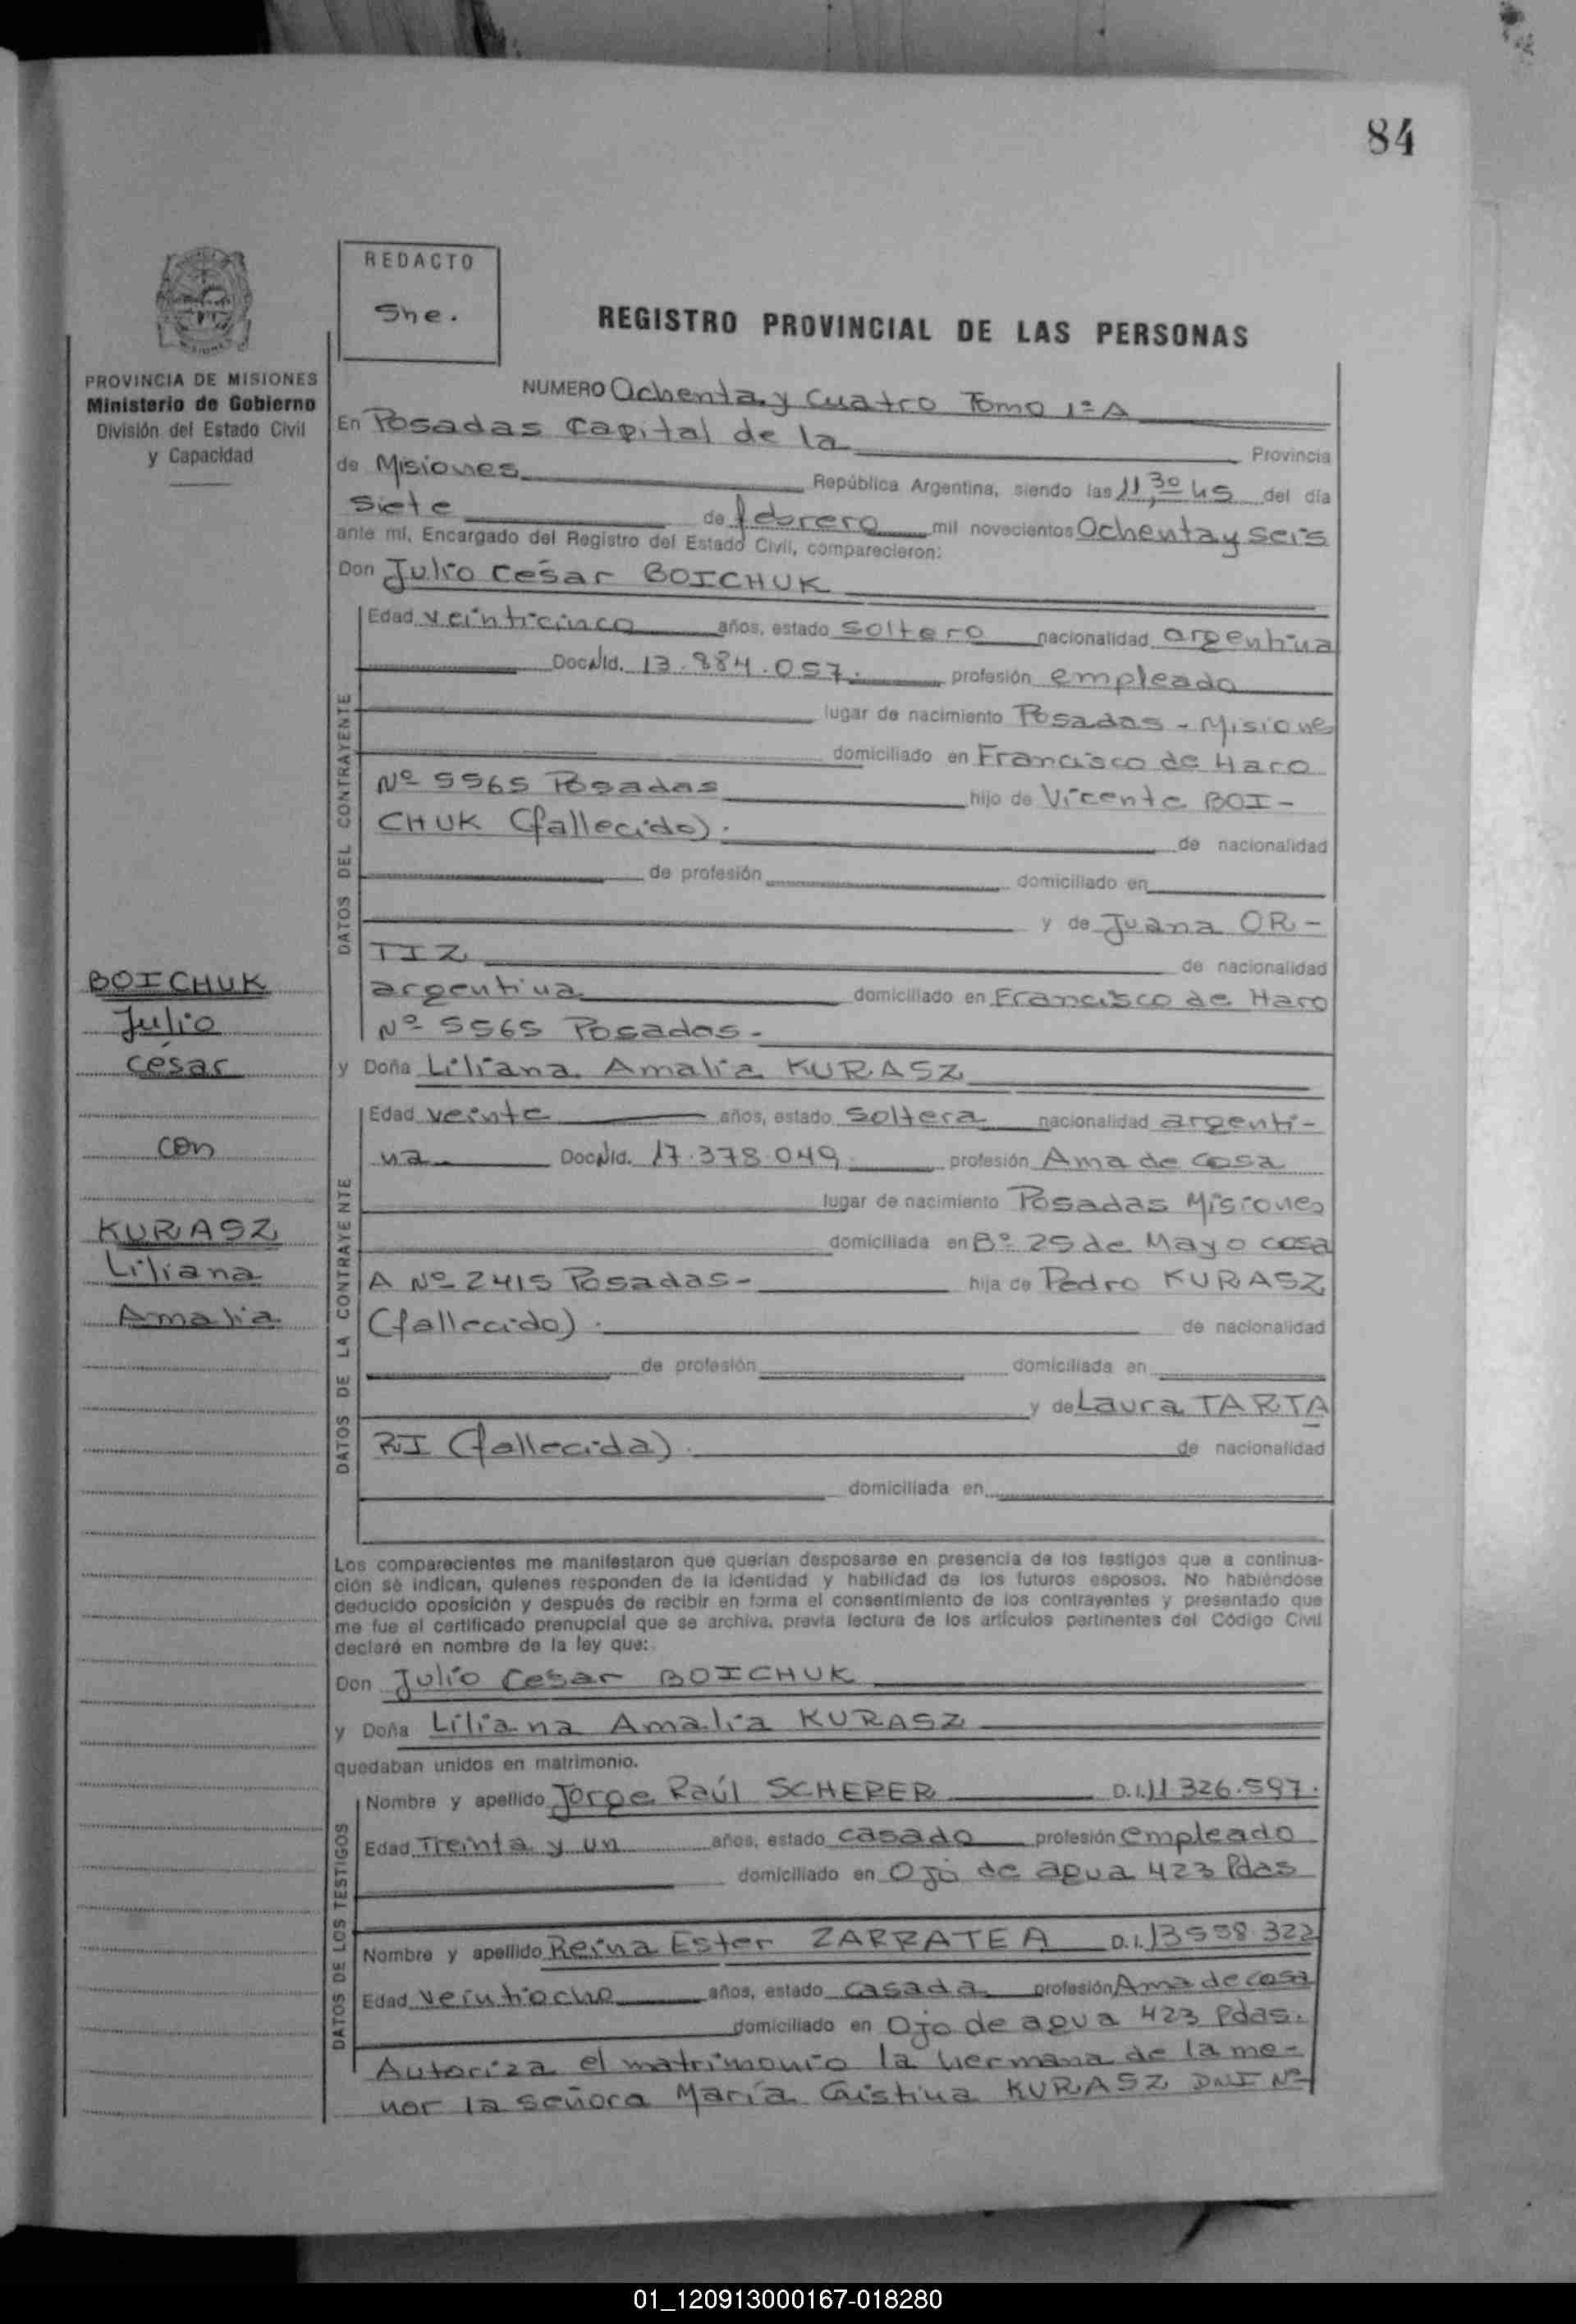 84
REDACTO
She.
REGISTRO PROVINCIAL DE LAS PERSONAS
PROVINCIA DE MISIONES
Ministerio de Gobierno
División del Estado Civil
y Capacidad
NUMERO Ochenta y cuatro Tomo 1º A
En Posadas Capital de la Provincia
de Misiones República Argentina, siendo las 11,30 hs del día
siete de febrero mil novecientos Ochenta y seis
ante mí, Encargado del Registro del Estado Civil, comparecieron:
Don Julio César BOICHUK
DATOS DEL CONTRAYENTE
Edad veinticinco años, estado soltero nacionalidad argentina
Doc.NId. 13.884.057. profesión empleado
lugar de nacimiento Posadas - Misiones
domiciliado en Francisco de Haro
Nº 5565 Posadas hijo de Vicente BOI-
CHUK (fallecido). de nacionalidad
de profesión domiciliado en
y de Juana OR-
TIZ de nacionalidad
argentina domiciliado en Francisco de Haro
Nº 5565 Posadas-
BOICHUK
Julio
César
con
KURASZ
Liliana
Amalia
y Doña Liliana Amalia KURASZ
DATOS DE LA CONTRAYENTE
Edad veinte años, estado soltera nacionalidad argenti-
na Doc.NId. 17.378.049 profesión Ama de casa
lugar de nacimiento Posadas Misiones
domiciliada en Bº 25 de Mayo casa
A Nº 2415 Posadas- hija de Pedro KURASZ
(fallecido). de nacionalidad
de profesión domiciliada en
y de Laura TARTA
RI (fallecida). de nacionalidad
domiciliada en
Los comparecientes me manifestaron que querían desposarse en presencia de los testigos que a continua-
ción se indican, quienes responden de la identidad y habilidad de los futuros esposos. No habiéndose
deducido oposición y después de recibir en forma el consentimiento de los contrayentes y presentado que
me fue el certificado prenupcial que se archiva, previa lectura de los artículos pertinentes del Código Civil
declaré en nombre de la ley que:
Don Julio Cesar BOICHUK
y Doña Liliana Amalia KURASZ
quedaban unidos en matrimonio.
DATOS DE LOS TESTIGOS
Nombre y apellido Jorge Raúl SCHERER D.I. 11.326.597.
Edad Treinta y un años, estado casado profesión empleado
domiciliado en Ojo de agua 423 Pdas
Nombre y apellido Reina Ester ZARRATEA D.I. 13558.322
Edad veintiocho años, estado casada profesión Ama de casa
domiciliado en Ojo de agua 423 Pdas.
Autoriza el matrimonio la hermana de la me-
nor la señora María Cristina KURASZ DNI Nº
01_120913000167-018280